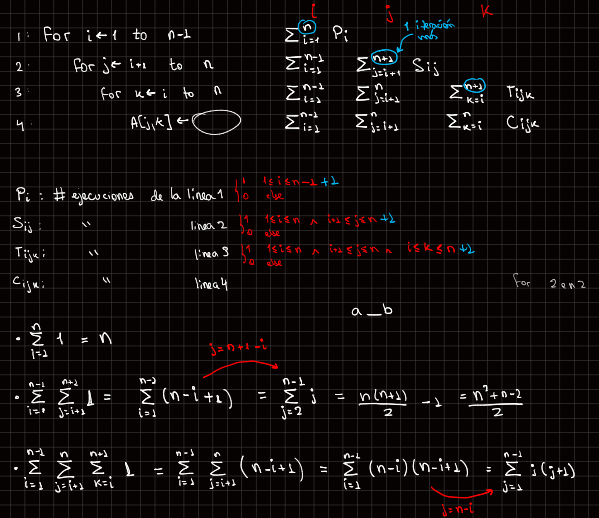 i j k
1: For i ← 1 to n-1 ∑_{i=1}^{n} P_i 1 iteración más
2: For j ← i+1 to n ∑_{i=1}^{n-1} ∑_{j=i+1}^{n+1} S_{ij}
3 For k ← i to n ∑_{i=1}^{n-1} ∑_{j=i+1}^{n} ∑_{k=i}^{n+1} T_{ijk}
4 A[j,k] ← ∑_{i=1}^{n-1} ∑_{j=i+1}^{n} ∑_{k=i}^{n} C_{ijk}
P_i : # ejecuciones de la linea 1 { 1 1≤i≤n-1+1
0 else
S_{ij} : " linea 2 { 1 1≤i≤n ∧ i+1≤j≤n+1
0 else
T_{ijk} : " linea 3 { 1 1≤i≤n ∧ i+1≤j≤n ∧ i≤k≤n+1
0 else
C_{ijk} : " linea 4
For 2 en 2
a _ b
• ∑_{i=1}^{n} 1 = n
j=n+1-i
• ∑_{i=1}^{n-1} ∑_{j=i+1}^{n+1} 1 = ∑_{i=1}^{n-1} (n-i+1) = ∑_{j=2}^{n-1} j = n(n+1)/2 - 1 = n²+n-2/2
• ∑_{i=1}^{n-1} ∑_{j=i+1}^{n} ∑_{k=i}^{n+1} 1 = ∑_{i=1}^{n-1} ∑_{j=i+1}^{n} (n-i+1) = ∑_{i=1}^{n-1} (n-i)(n-i+1) = ∑_{j=1}^{n-1} j(j+1)
j=n-i